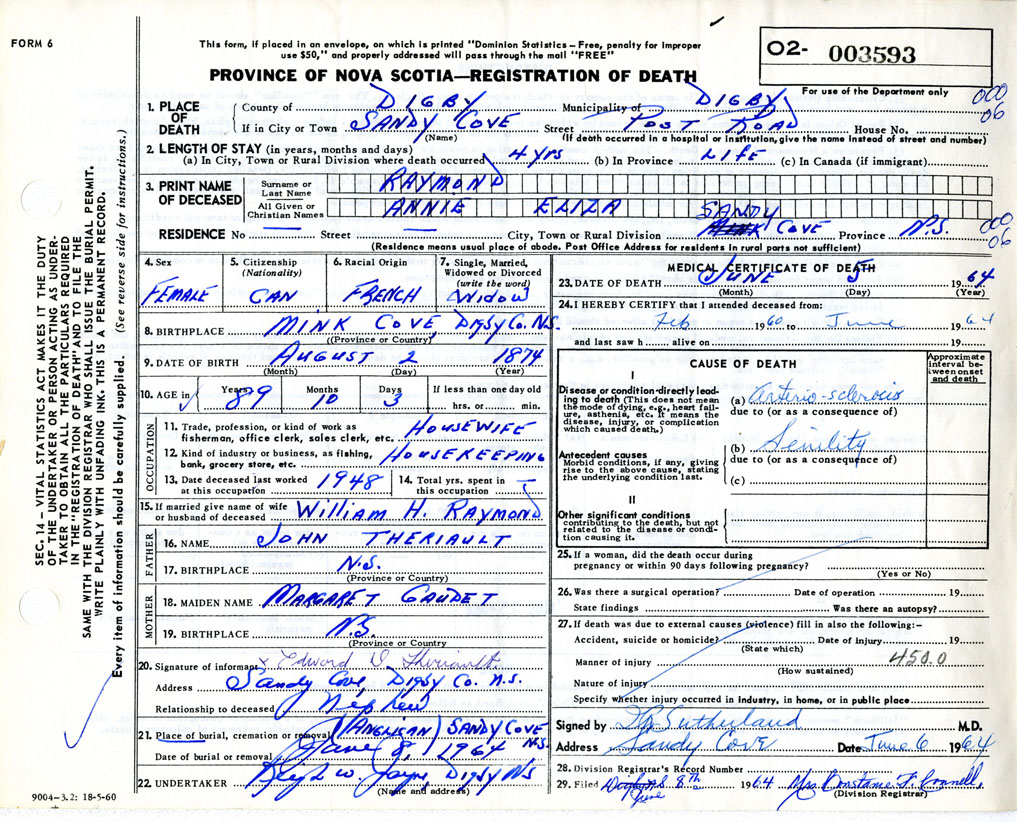 FORM 6
This form, if placed in an envelope, on which is printed "Dominion Statistics – Free, penalty for improper
use $50," and properly addressed will pass through the mail "FREE"
PROVINCE OF NOVA SCOTIA—REGISTRATION OF DEATH
02- 003593
For use of the Department only
000
06
1. PLACE OF DEATH
County of DIGBY Municipality of DIGBY
If in City or Town SANDY COVE Street POST ROAD House No.
(Name) (If death occurred in a hospital or institution, give the name instead of street and number)
2. LENGTH OF STAY (in years, months and days)
(a) In City, Town or Rural Division where death occurred 4 yrs (b) In Province LIFE (c) In Canada (if immigrant)
3. PRINT NAME OF DECEASED
Surname or Last Name RAYMOND
All Given or Christian Names ANNIE ELIZA
RESIDENCE No — Street — City, Town or Rural Division SANDY COVE Province N.S.
000
06
(Residence means usual place of abode. Post Office Address for residents in rural parts not sufficient)
4. Sex FEMALE
5. Citizenship (Nationality) CAN
6. Racial Origin FRENCH
7. Single, Married, Widowed or Divorced (write the word) Widow
8. BIRTHPLACE MINK COVE, DIGBY CO. N.S.
(Province or Country)
9. DATE OF BIRTH AUGUST 2 1874
(Month) (Day) (Year)
10. AGE in Years 89 Months 10 Days 3 If less than one day old hrs. or min.
OCCUPATION
11. Trade, profession, or kind of work as
fisherman, office clerk, sales clerk, etc. HOUSEWIFE
12. Kind of industry or business, as fishing,
bank, grocery store, etc. HOUSEKEEPING
13. Date deceased last worked at this occupation 1948
14. Total yrs. spent in this occupation
15. If married give name of wife
or husband of deceased WILLIAM H. RAYMOND
FATHER
16. NAME JOHN THERIAULT
17. BIRTHPLACE N.S.
(Province or Country)
MOTHER
18. MAIDEN NAME MARGARET GAUDET
19. BIRTHPLACE N.S.
(Province or Country
20. Signature of informant x Edward D Theriault
Address Sandy Cove, Digby Co. N.S.
Relationship to deceased Nephew
21. Place of burial, cremation or removal (ANGLICAN) SANDY COVE N.S.
Date of burial or removal June 8, 1964
22. UNDERTAKER W. Jayne, Digby NS
(Name and address)
9004–3.2: 18-5-60
MEDICAL CERTIFICATE OF DEATH
23. DATE OF DEATH JUNE 5 1964
(Month) (Day) (Year)
24. I HEREBY CERTIFY that I attended deceased from:
Feb 1960 to June 1964
and last saw h alive on 19
CAUSE OF DEATH
Approximate interval between onset and death
I
Disease or condition directly leading to death (This does not mean the mode of dying, e.g., heart failure, asthenia, etc. It means the disease, injury, or complication which caused death.)
(a) Arterio-sclerosis
due to (or as a consequence of)
Antecedent causes
Morbid conditions, if any, giving rise to the above cause, stating the underlying condition last.
(b) Senility
due to (or as a consequence of)
(c)
II
Other significant conditions
contributing to the death, but not related to the disease or condition causing it.
25. If a woman, did the death occur during
pregnancy or within 90 days following pregnancy?
(Yes or No)
26. Was there a surgical operation? Date of operation 19
State findings Was there an autopsy?
27. If death was due to external causes (violence) fill in also the following:-
Accident, suicide or homicide? Date of injury 19
(State which)
Manner of injury 450.0
(How sustained)
Nature of injury
Specify whether injury occurred in industry, in home, or in public place
Signed by Sutherland M.D.
Address Sandy Cove Date June 6 1964
28. Division Registrar's Record Number
29. Filed June 8th 1964 Mrs Constance F. Connell
(Division Registrar)
SEC. 14 – VITAL STATISTICS ACT MAKES IT THE DUTY
OF THE UNDERTAKER OR PERSON ACTING AS UNDER-
TAKER TO OBTAIN ALL THE PARTICULARS REQUIRED
IN THE "REGISTRATION OF DEATH" AND TO FILE THE
SAME WITH THE DIVISION REGISTRAR WHO SHALL ISSUE THE BURIAL PERMIT.
WRITE PLAINLY WITH UNFADING INK. THIS IS A PERMANENT RECORD.
Every item of information should be carefully supplied. (See reverse side for instructions.)